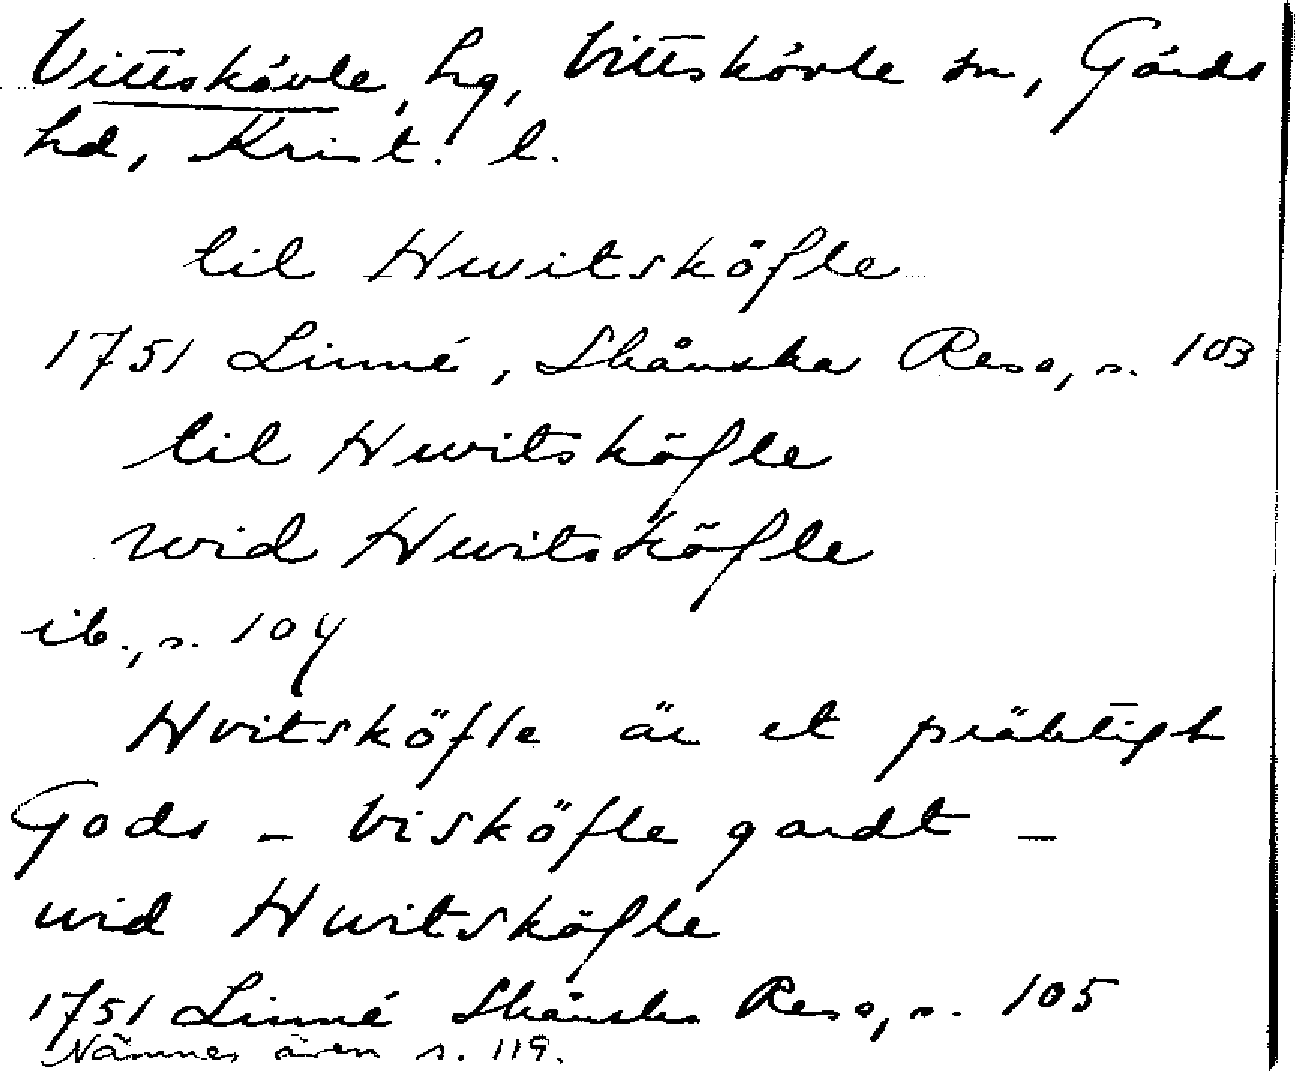 Vittskövle, hg, Vittskövle sn, Gärds
hd, Krist. l.
til Hwitsköfle
1751 Linné, Skånska Resa, s. 103
til Hwitsköfle
wid Hwitsköfle
ib., s. 104
Hvitsköfle är et präktigt
Gods – Visköfle gardt –
wid Hwitsköfle
1751 Linné Skånska Resa, s. 105
Nämnes även s. 119.